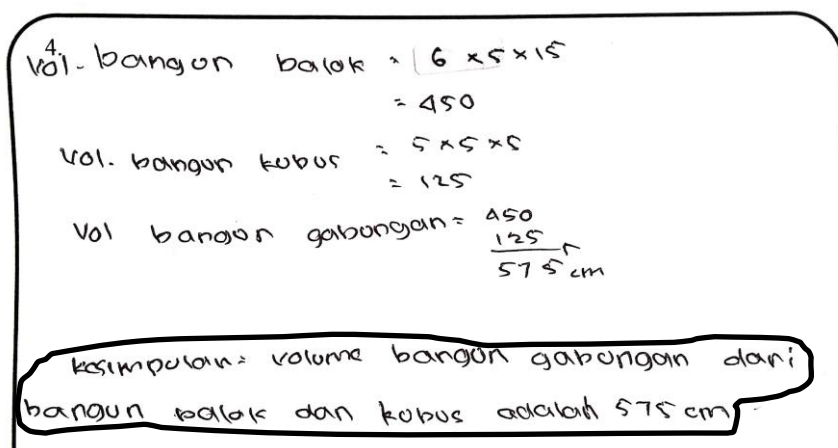 4.
Vol. bangun balok = 6 x 5 x 15
= 450
Vol. bangun kubus = 5 x 5 x 5
= 125
Vol bangun gabungan = 450
125 +
575 cm
kesimpulan = volume bangun gabungan dari
bangun balok dan kubus adalah 575 cm